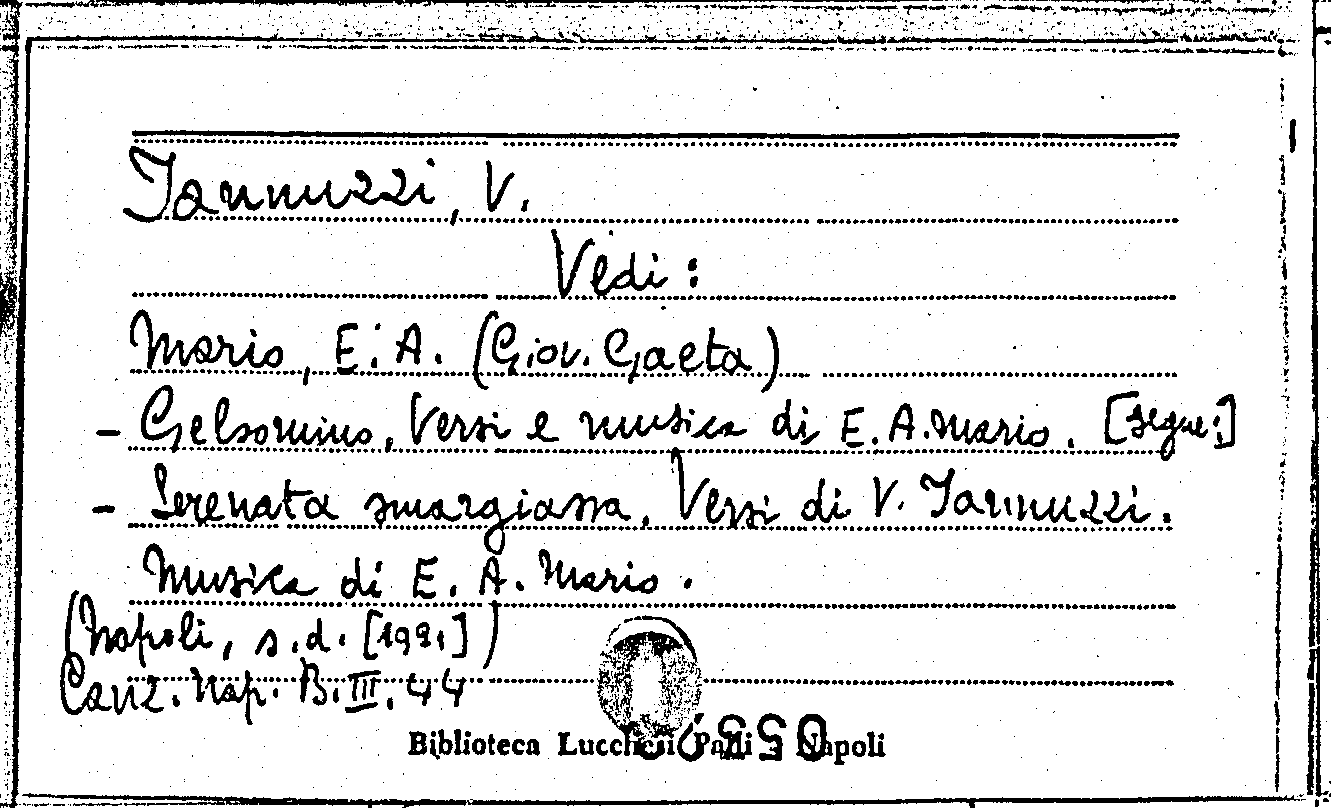 Iannuzzi, V.
Vedi:
Mario, E. A. (Giov. Gaeta)
- Gelsomino. Versi e musica di E. A. Mario. [segue:]
- Serenata smargiassa. Versi di V. Iannuzzi.
Musica di E. A. Mario.
(Napoli, s.d. [1921])
Canz. Nap. B. III. 44
Biblioteca Lucchesi Palli - Napoli